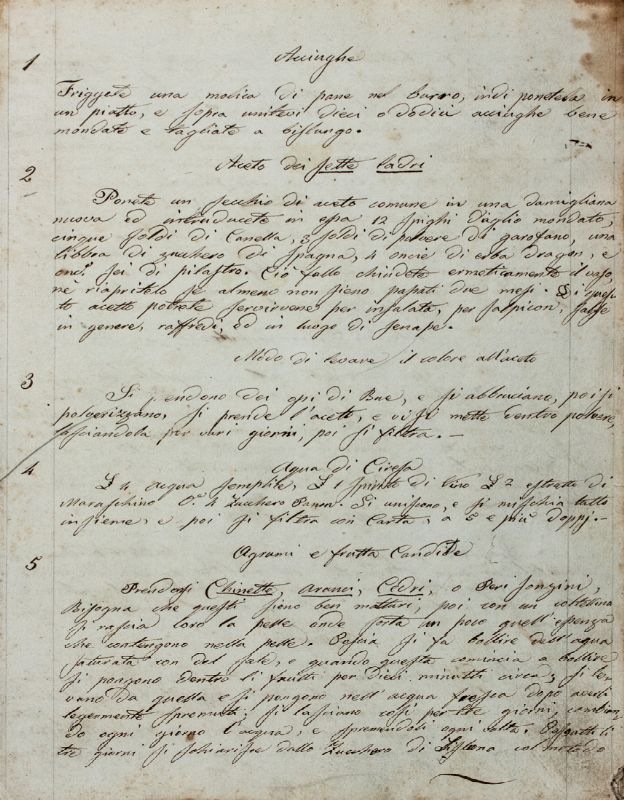 1
Acciughe
Friggete una modica di pane nel burro, indi ponetela in
un piatto, e sopra unitevi dieci o dodici acciughe bene
mondate e tagliate a bislungo.
2
Aceto dei sette ladri
Ponete un secchio di aceto comune in una damigliana
nuova ed introducete in essa 12 spighi d'aglio mondato,
cinque soldi di Canella, 3 soldi di polvere di garofano, una
libbra di zucchero di Spagna, 4 oncie di erba dragon, e
sei di pilastro. Ciò fatto chiudete ermeticamente il vaso
nè riapritelo se almeno non sieno passati due mesi. Di ques-
to aceto potrete servirvene per insalata, per salpicon, salse
in genere, raffredi, ed in luogo di senape.
Modo di levare il colore all'aceto
3
Si prendono dei ossi di Bue, e si abbruciano, poi si
polverizzano, si prende l'aceto, e vi si mette dentro polvere,
lasciandola per vari giorni, poi si filtra.
Aqua di Ciresa
4
L 4 acqua semplice, L 1 spirito di vino L 2 estratto di
Maraschino O. 4 Zucchero Si uniscono, e si mischia tutto
insieme, e poi si filtra con Carta, a 5 e più doppj.
Agrumi e frutta Candite
5
Prendonsi Chinette, Aranci, Cedri, o Peri
Bisogna che questi sieno ben matturi, poi con un coltellino
si rascia loro la pelle onde sorta un poco quell'essenza
che contengono nella pelle. Poscia si fa bollire dell'aqua
saturata con del sale, e quando questa comincia a bollire
si pongono dentro li frutti per dieci minutti circa, si le-
vano da quella e si pongono nell'acqua fresca dopo averli
legermente spremuti, si lasciano così per tre giorni, cambian-
do ogni giorno l'acqua, e spremendoli ogni volta. Passatti li
tre giorni si schiarisce dallo Zucchero di Lisbona col metodo